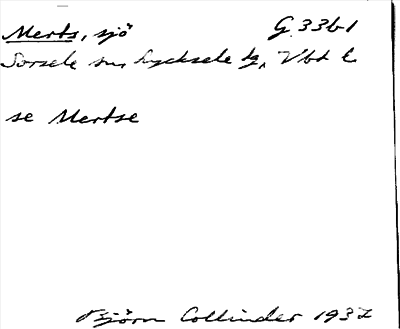 Merts, sjö G 33b1
Sorsele sn, Lycksele lg, Vbt l
se Mertse
Björn Collinder 1932